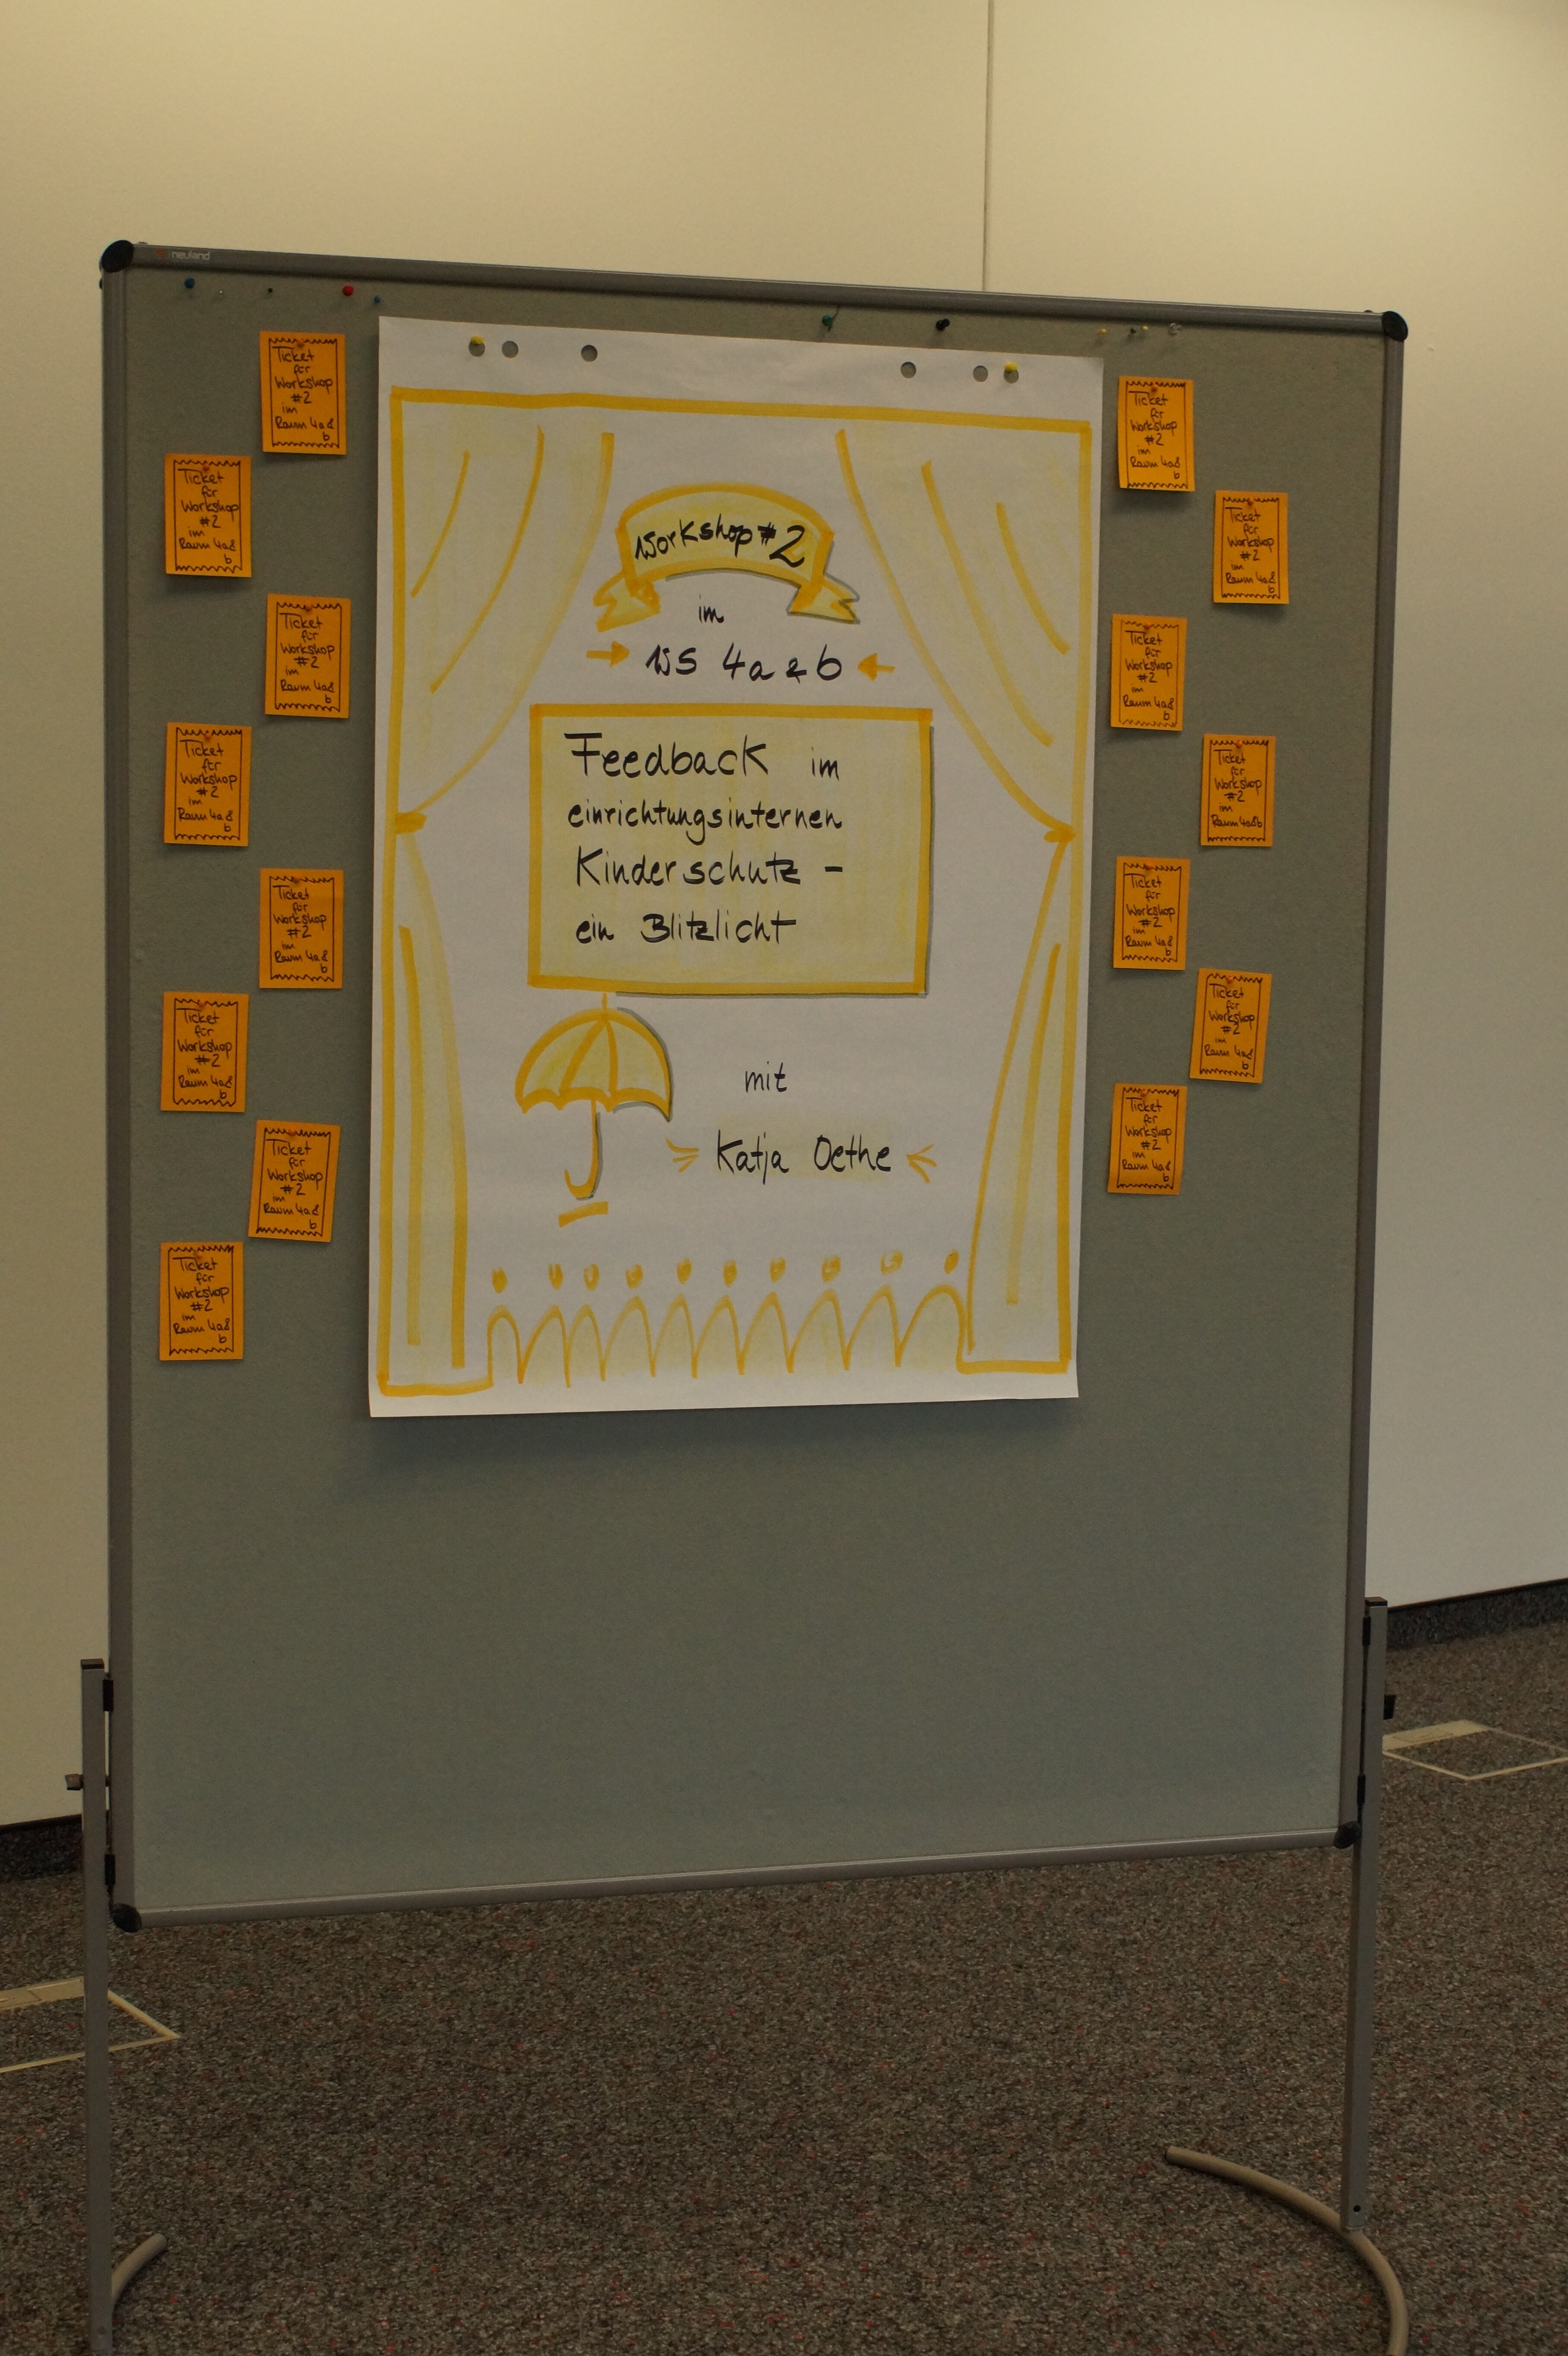 neuland
Workshop #2
im
WS 4a & b
Feedback im
einrichtungsinternen
Kinderschutz -
ein Blitzlicht
mit
Katja Oethe
Ticket
für
Workshop
#2
im
Raum 4a&
b
Ticket
für
Workshop
#2
im
Raum 4a&
b
Ticket
für
Workshop
#2
im
Raum 4a&
b
Ticket
für
Workshop
#2
im
Raum 4a&
b
Ticket
für
Workshop
#2
im
Raum 4a&
b
Ticket
für
Workshop
#2
im
Raum 4a&
b
Ticket
für
Workshop
#2
im
Raum 4a&
b
Ticket
für
Workshop
#2
im
Raum 4a&
b
Ticket
für
Workshop
#2
im
Raum 4a&
b
Ticket
für
Workshop
#2
im
Raum 4a&
b
Ticket
für
Workshop
#2
im
Raum 4a&
b
Ticket
für
Workshop
#2
im
Raum 4a&b
Ticket
für
Workshop
#2
im
Raum 4a&
b
Ticket
für
Workshop
#2
im
Raum 4a&
b
Ticket
für
Workshop
#2
im
Raum 4a&
b